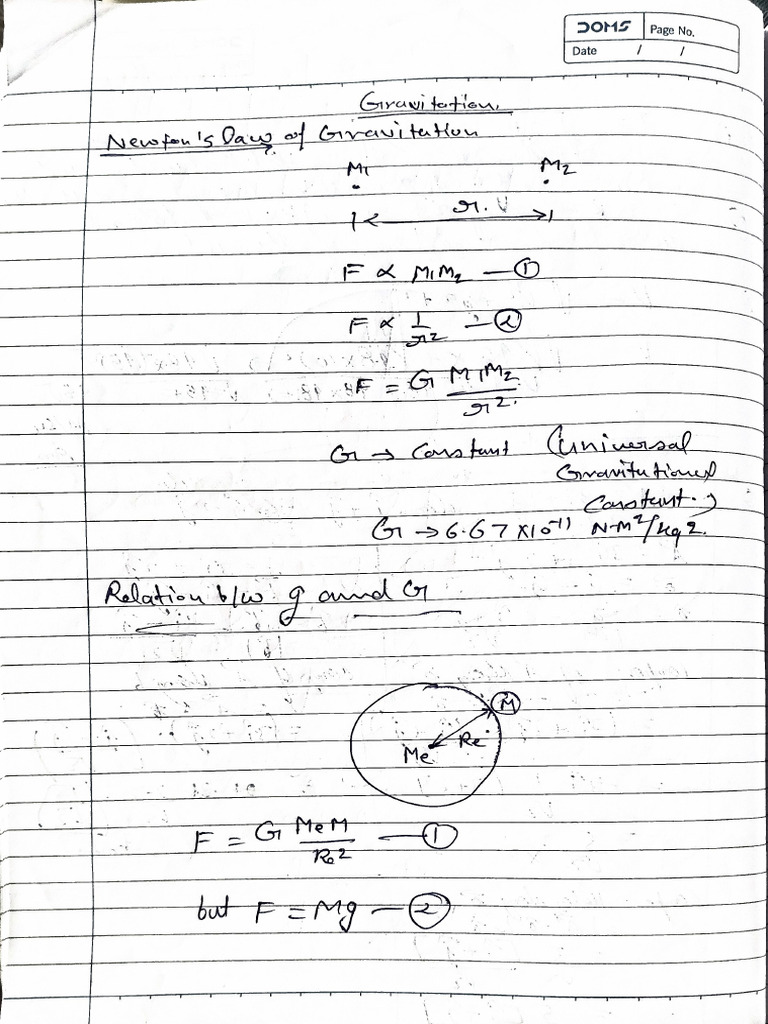 DOMS Page No.
Date / /
Gravitation.
Newton's Law of Gravitation
M1 M2
r.
F ∝ M1M2 — ①
F ∝ 1/r² — ②
F = G M1M2/r².
G → Constant (Universal
Gravitational
Constant.)
G → 6.67 x10⁻¹¹ N-M²/kg2.
Relation b/w g and G
M
Me Re
F = G MeM/Re2 — ①
but F = Mg — ②